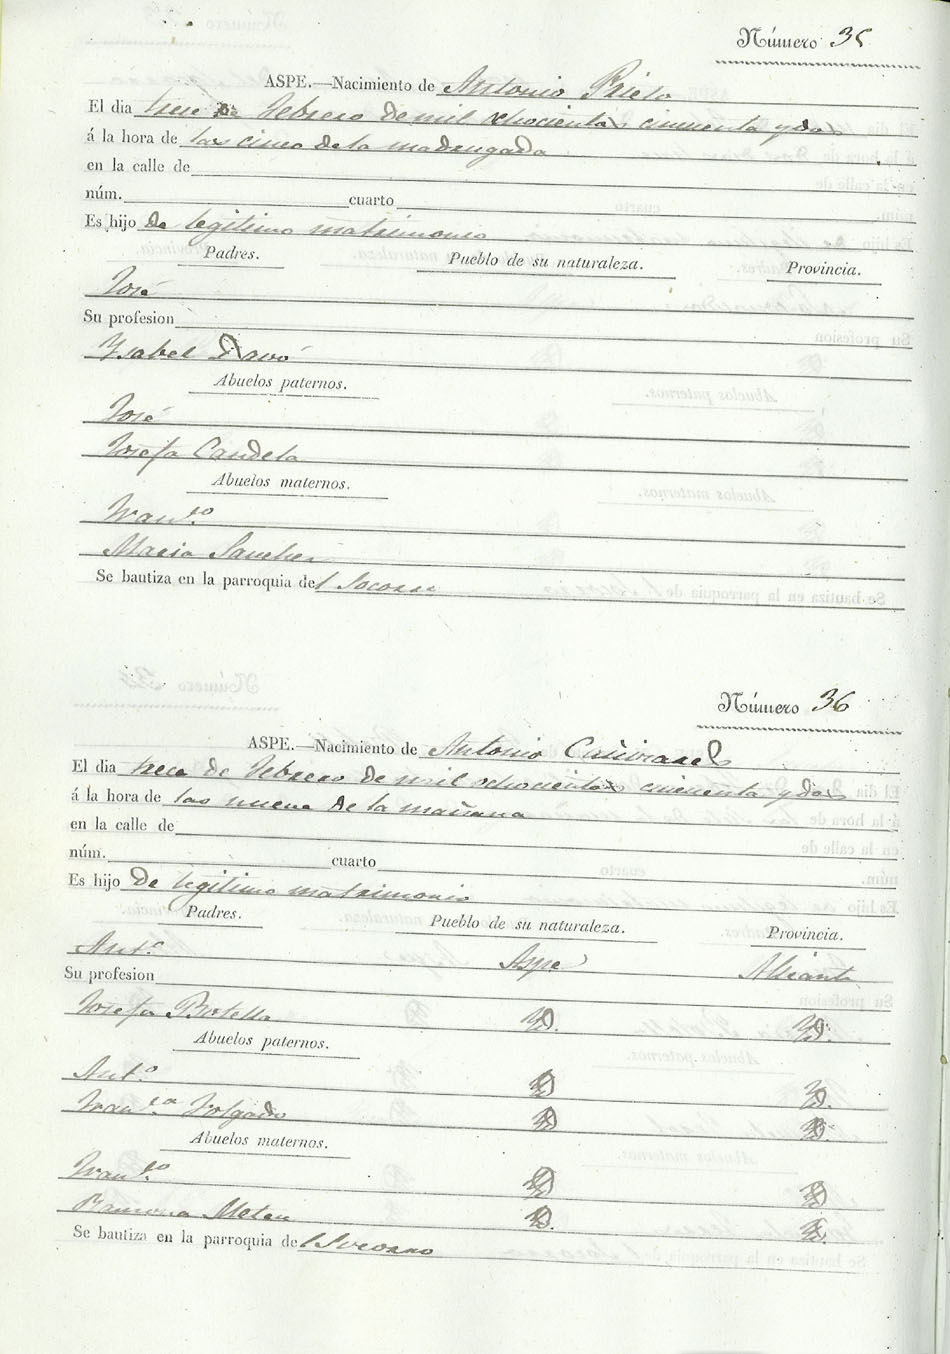 Número 35
ASPE.—Nacimiento de Antonio Prieto
El dia trece de Febrero de mil ochocientos cincuenta y dos
á la hora de las cinco de la madrugada
en la calle de
núm. cuarto
Es hijo de legitimo matrimonio
Padres. Pueblo de su naturaleza. Provincia.
José
Su profesion
Ysabel Davó
Abuelos paternos.
José
Josefa Candela
Abuelos maternos.
Franco
Maria Sanchez
Se bautiza en la parroquia del Socorro
Número 36
ASPE.—Nacimiento de Antonio Cañizares
El dia trece de Febrero de mil ochocientos cincuenta y dos
á la hora de las nueve de la mañana
en la calle de
núm. cuarto
Es hijo de legitimo matrimonio
Padres. Pueblo de su naturaleza. Provincia.
Anto Aspe Alicante
Su profesion
Josefa Botella Yd. Yd.
Abuelos paternos.
Anto Yd. Yd.
Franca Folgado Yd. Yd.
Abuelos maternos.
Franco Yd. Yd.
Ramona Yd. Yd.
Se bautiza en la parroquia del Socorro